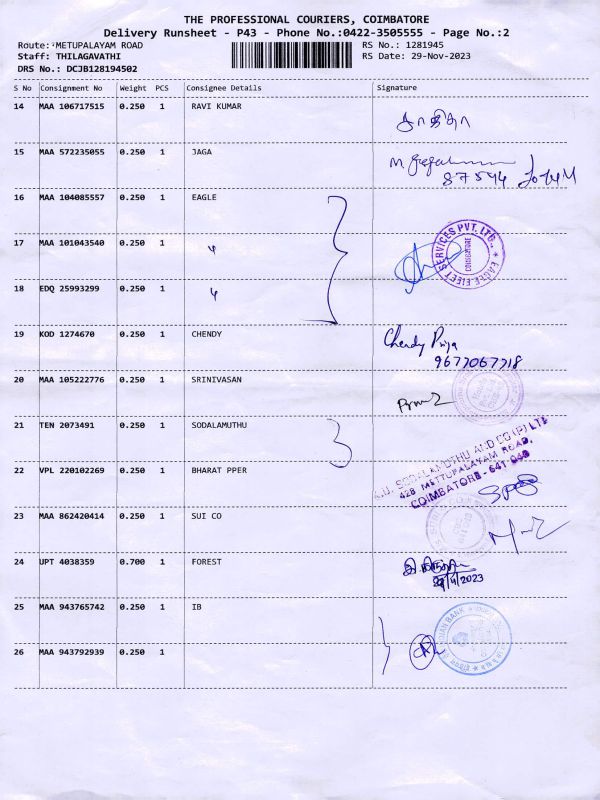 THE PROFESSIONAL COURIERS, COIMBATORE
Delivery Runsheet - P43 - Phone No.:0422-3505555 - Page No.:2
Route: METUPALAYAM ROAD RS No.: 1281945
Staff: THILAGAVATHI RS Date: 29-Nov-2023
DRS No.: DCJB128194502
S No Consignment No Weight PCS Consignee Details Signature
14 MAA 106717515 0.250 1 RAVI KUMAR
15 MAA 572235055 0.250 1 JAGA
87594
16 MAA 104085557 0.250 1 EAGLE
17 MAA 101043540 0.250 1
EAGLE FLEET SERVICES PVT. LTD. COIMBATORE
18 EDQ 25993299 0.250 1
19 KOD 1274670 0.250 1 CHENDY Chendy Priya
9677067718
20 MAA 105222776 0.250 1 SRINIVASAN
21 TEN 2073491 0.250 1 SODALAMUTHU
A.U. SODALAMUTHU AND CO (P) LTD
428 METTUPALAYAM ROAD,
COIMBATORE - 641 043
22 VPL 220102269 0.250 1 BHARAT PPER
23 MAA 862420414 0.250 1 SUI CO
24 UPT 4038359 0.700 1 FOREST
25 MAA 943765742 0.250 1 IB
INDIAN BANK
26 MAA 943792939 0.250 1